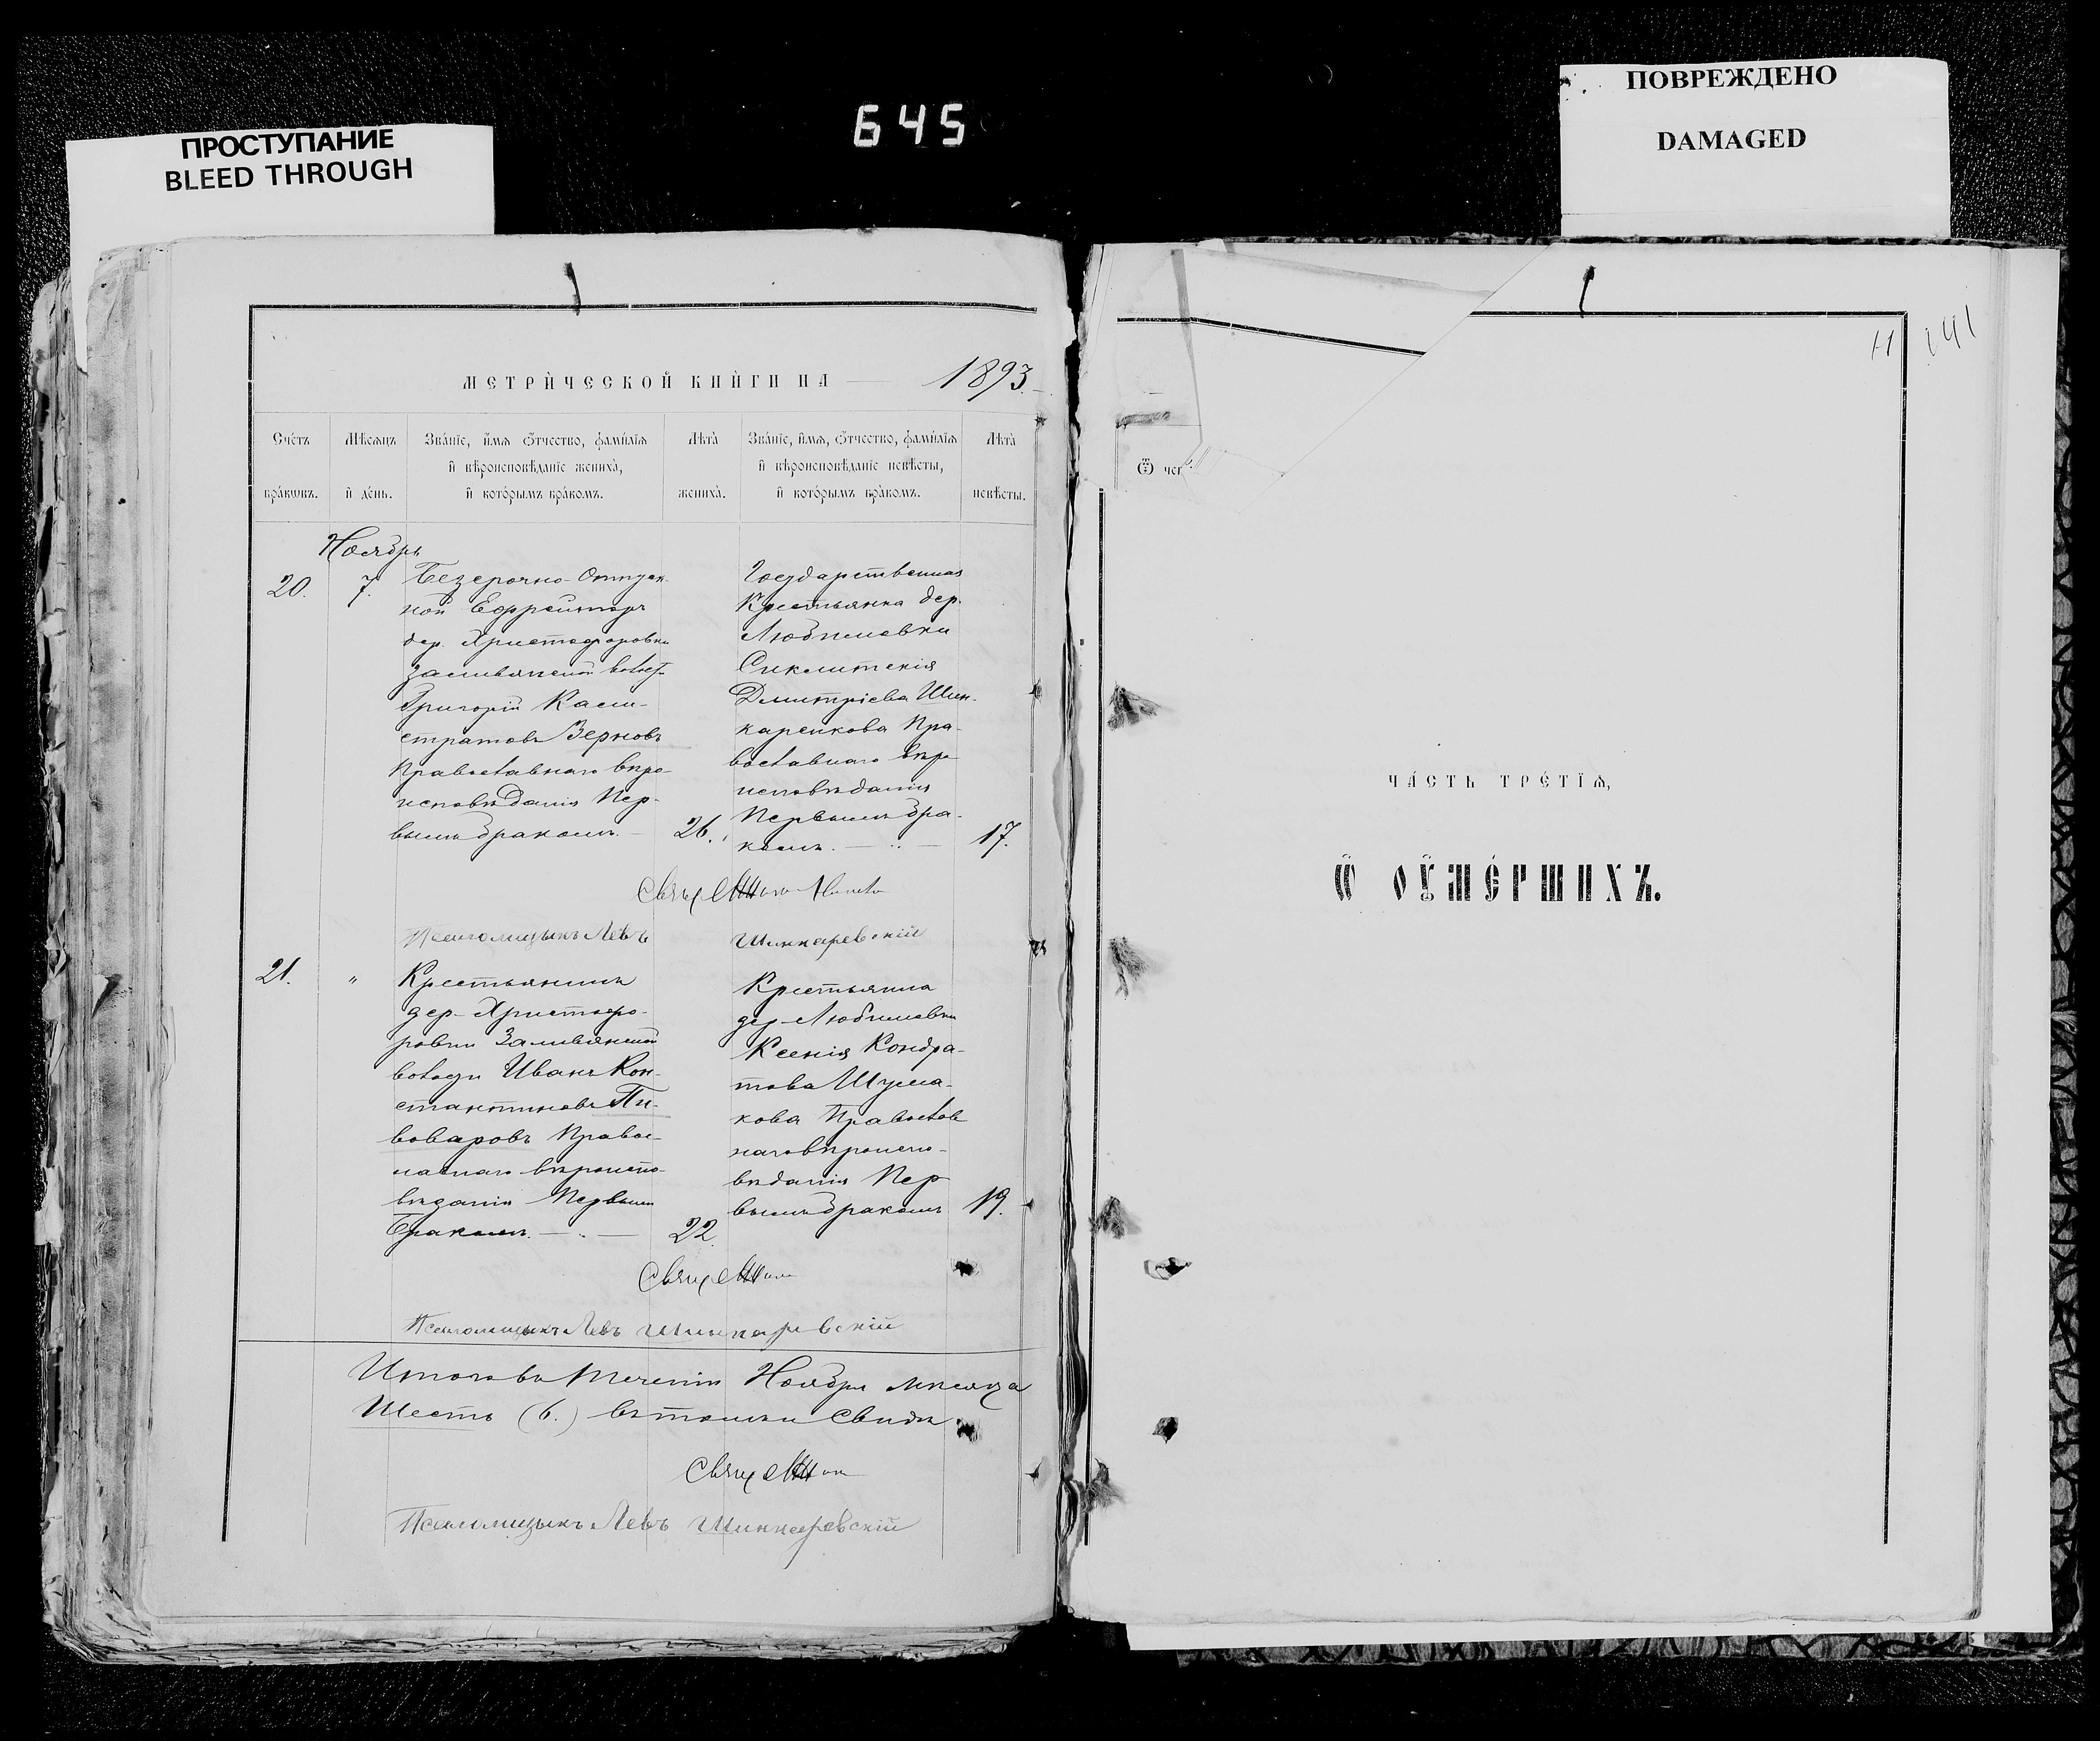 645
ПРОСТУПАНИЕ
BLEED THROUGH
ПОВРЕЖДЕНО
DAMAGED
МЕТРИ́ЧЕСКОЙ КНИ́ГИ НА 1893.
Сче́тъ бра́кѡвъ.
Мѣ́сѧцъ и҆ де́нь.
Зва́нїе, и҆́мѧ ѻ҆́тчество, фами́лїѧ
и҆ вѣроисповѣ́данїе жениха̀,
и҆ кото́рымъ бра́комъ.
Лѣта̀ жениха̀.
Зва́нїе, и҆́мѧ, ѻ҆́тчество, фами́лїѧ
и҆ вѣроисповѣ́данїе невѣ́сты,
и҆ кото́рымъ бра́комъ.
Лѣта̀ невѣ́сты.
Ноябрь
20. 7.
Безсрочно-Отпуск-
ной Ефрейторъ
дер. Христофоровки
Григорій Кали-
стратовъ Зерновъ
Православнаго вѣро-
исповѣданія Пер-
вымъ бракомъ. — 26.
Государственная
Крестьянка дер.
Любимовки
Синклитикія
Дмитріева Шин-
каренкова Пра-
вославнаго вѣро
исповѣданія
Первымъ бра-
комъ. — 17.
Свящ
Псаломщикъ Левъ Шинкаревскій
21. "
Крестьянинъ
дер. Христофо-
ровки
волости Иванъ Кон-
стантиновъ Пи-
воваровъ Правос-
лавнаго вѣроиспо-
вѣданія Первымъ
бракомъ. — 22.
Крестьянка
дер. Любимовки
Ксенія Кондра-
това Шума-
кова Православ
наго вѣроиспо-
вѣданія Пер
вымъ бракомъ 19.
Свящ
Псаломщикъ Левъ Шинкаревскій
Итого въ теченіи Ноября мѣсяца
Шесть (6.) въ томъ и свидѣ.
Свящ
Псаломщикъ Левъ Шинкаревскій
141
Ѿ чег
ЧА́СТЬ ТРЕ́ТЇѦ,
Ѡ҆ ОУ҆МЕ́РШИХЪ.